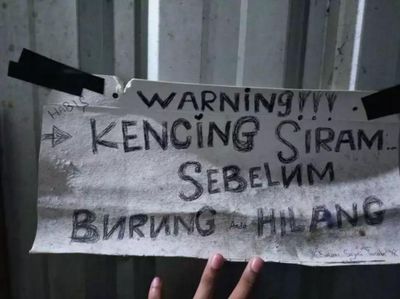 WARNING!!!
HABIS
KENCING SIRAM...
SEBELUM
BURUNG ANDA HILANG